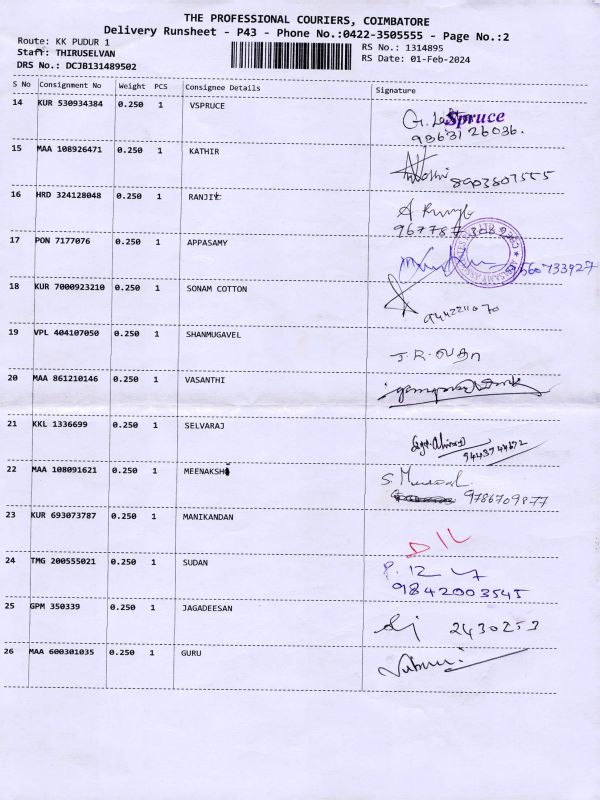 THE PROFESSIONAL COURIERS, COIMBATORE
Delivery Runsheet - P43 - Phone No.:0422-3505555 - Page No.:2
Route: KK PUDUR 1
Staff: THIRUSELVAN
DRS No.: DCJB131489502
RS No.: 1314895
RS Date: 01-Feb-2024
S No Consignment No Weight PCS Consignee Details Signature
14 KUR 530934384 0.250 1 VSPRUCE
Spruce
98631 26036.
15 MAA 108926471 0.250 1 KATHIR
8903807555
16 HRD 324128048 0.250 1 RANJIT
17 PON 7177076 0.250 1 APPASAMY
18 KUR 7000923210 0.250 1 SONAM COTTON
19 VPL 404107050 0.250 1 SHANMUGAVEL
20 MAA 861210146 0.250 1 VASANTHI
21 KKL 1336699 0.250 1 SELVARAJ
22 MAA 108091621 0.250 1 MEENAKSHI
9786709877
23 KUR 693073787 0.250 1 MANIKANDAN
D/L
24 TMG 200555021 0.250 1 SUDAN
9842003545
25 GPM 350339 0.250 1 JAGADEESAN
2430253
26 MAA 600301035 0.250 1 GURU